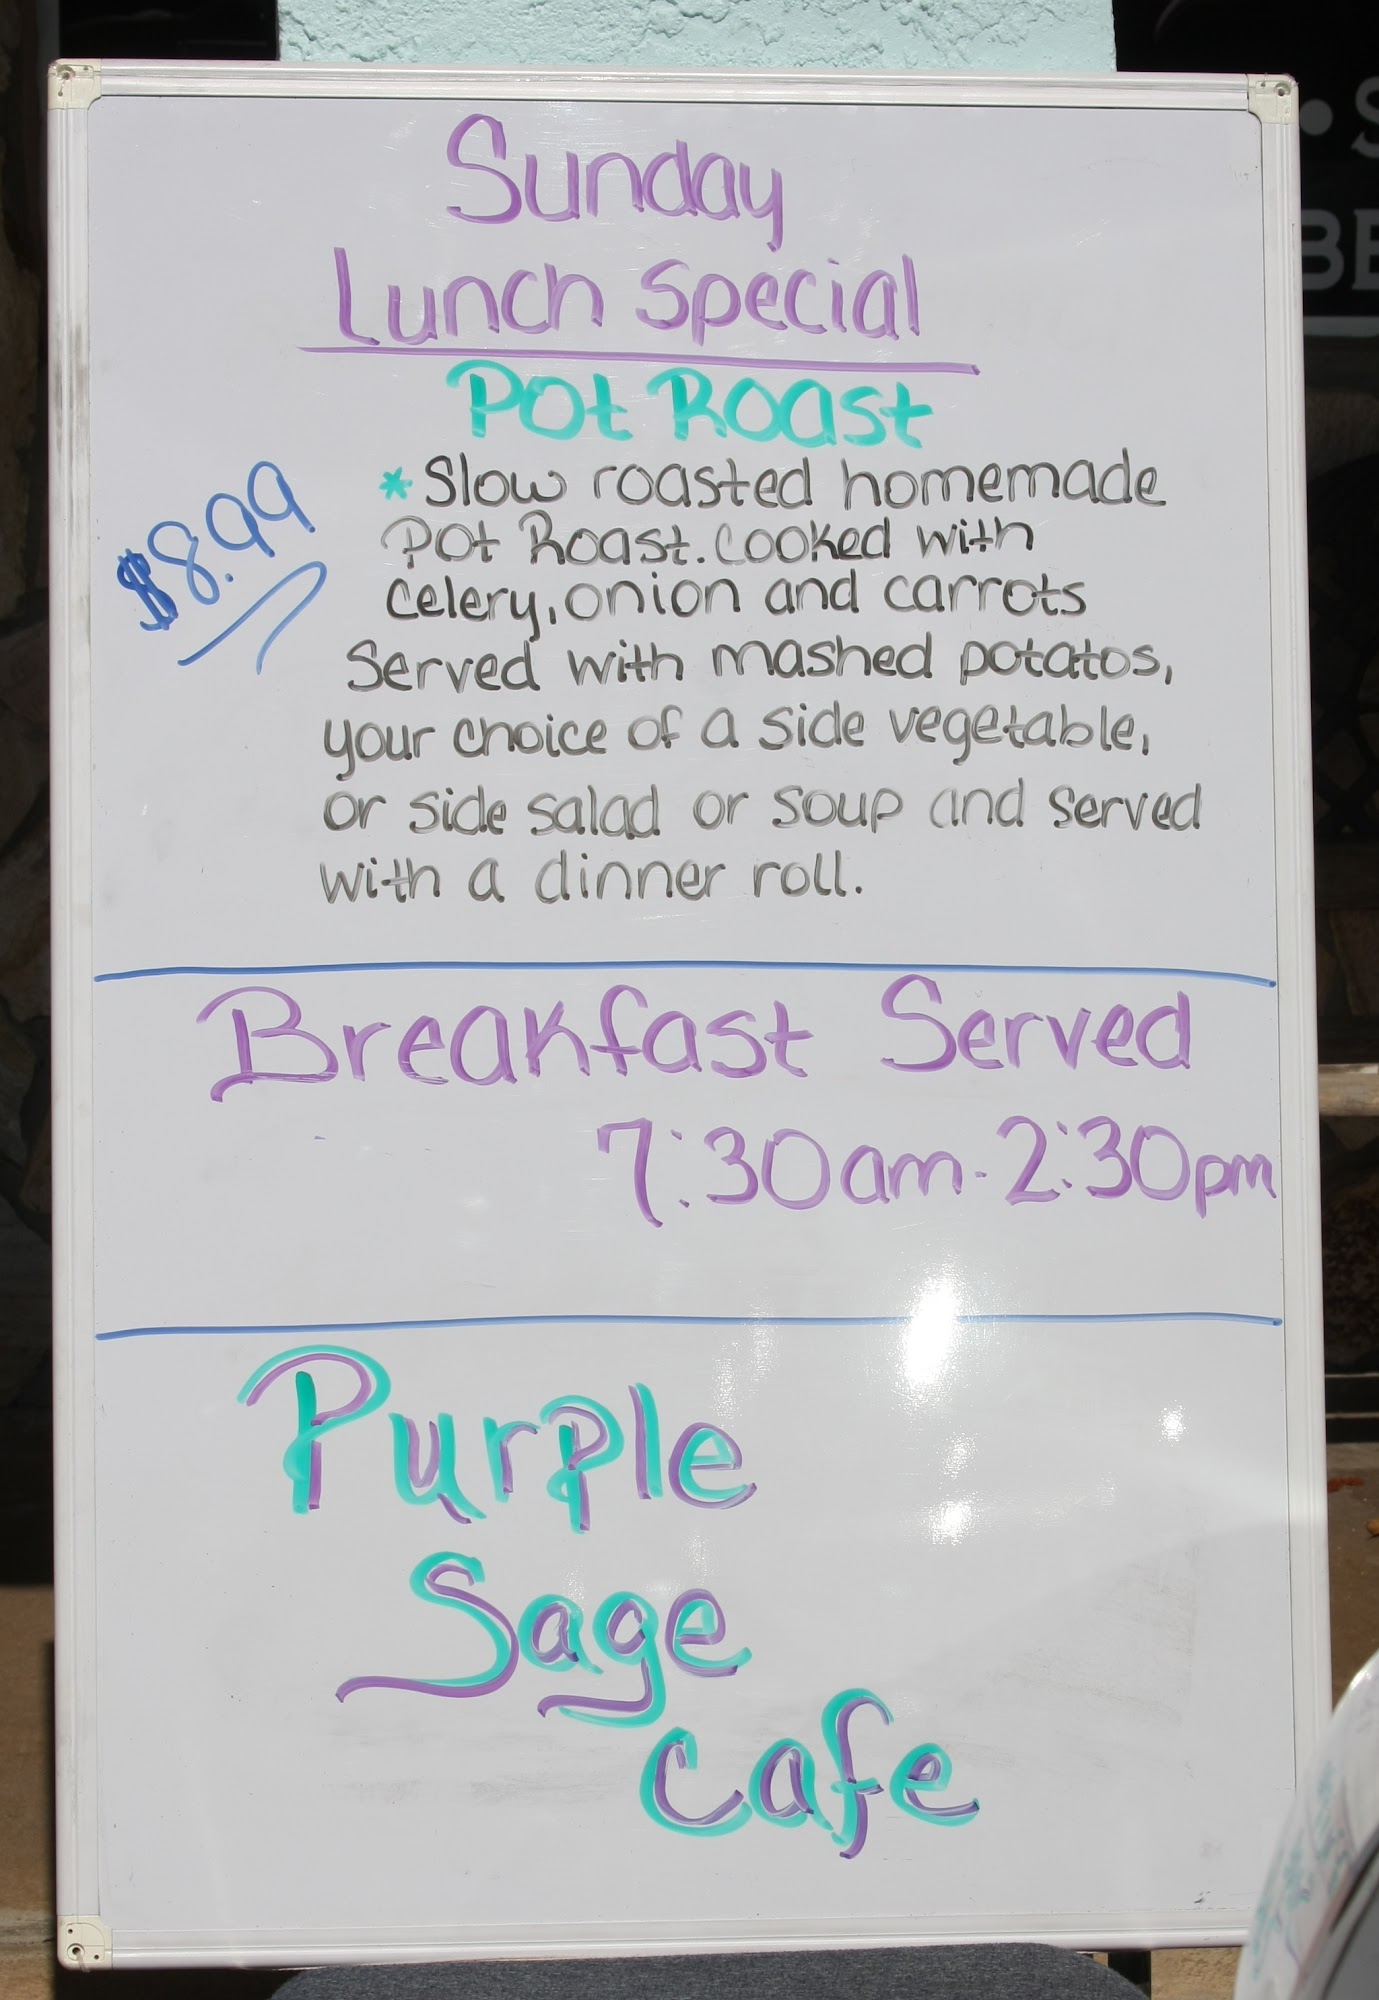 Sunday
Lunch Special
Pot Roast
$8.99
*Slow roasted homemade
Pot Roast. Cooked with
Celery, onion and carrots
Served with mashed potatos,
your choice of a side vegetable,
or side salad or soup and served
with a dinner roll.
Breakfast Served
7:30am - 2:30pm
Purple
Sage
Cafe
• S
BE